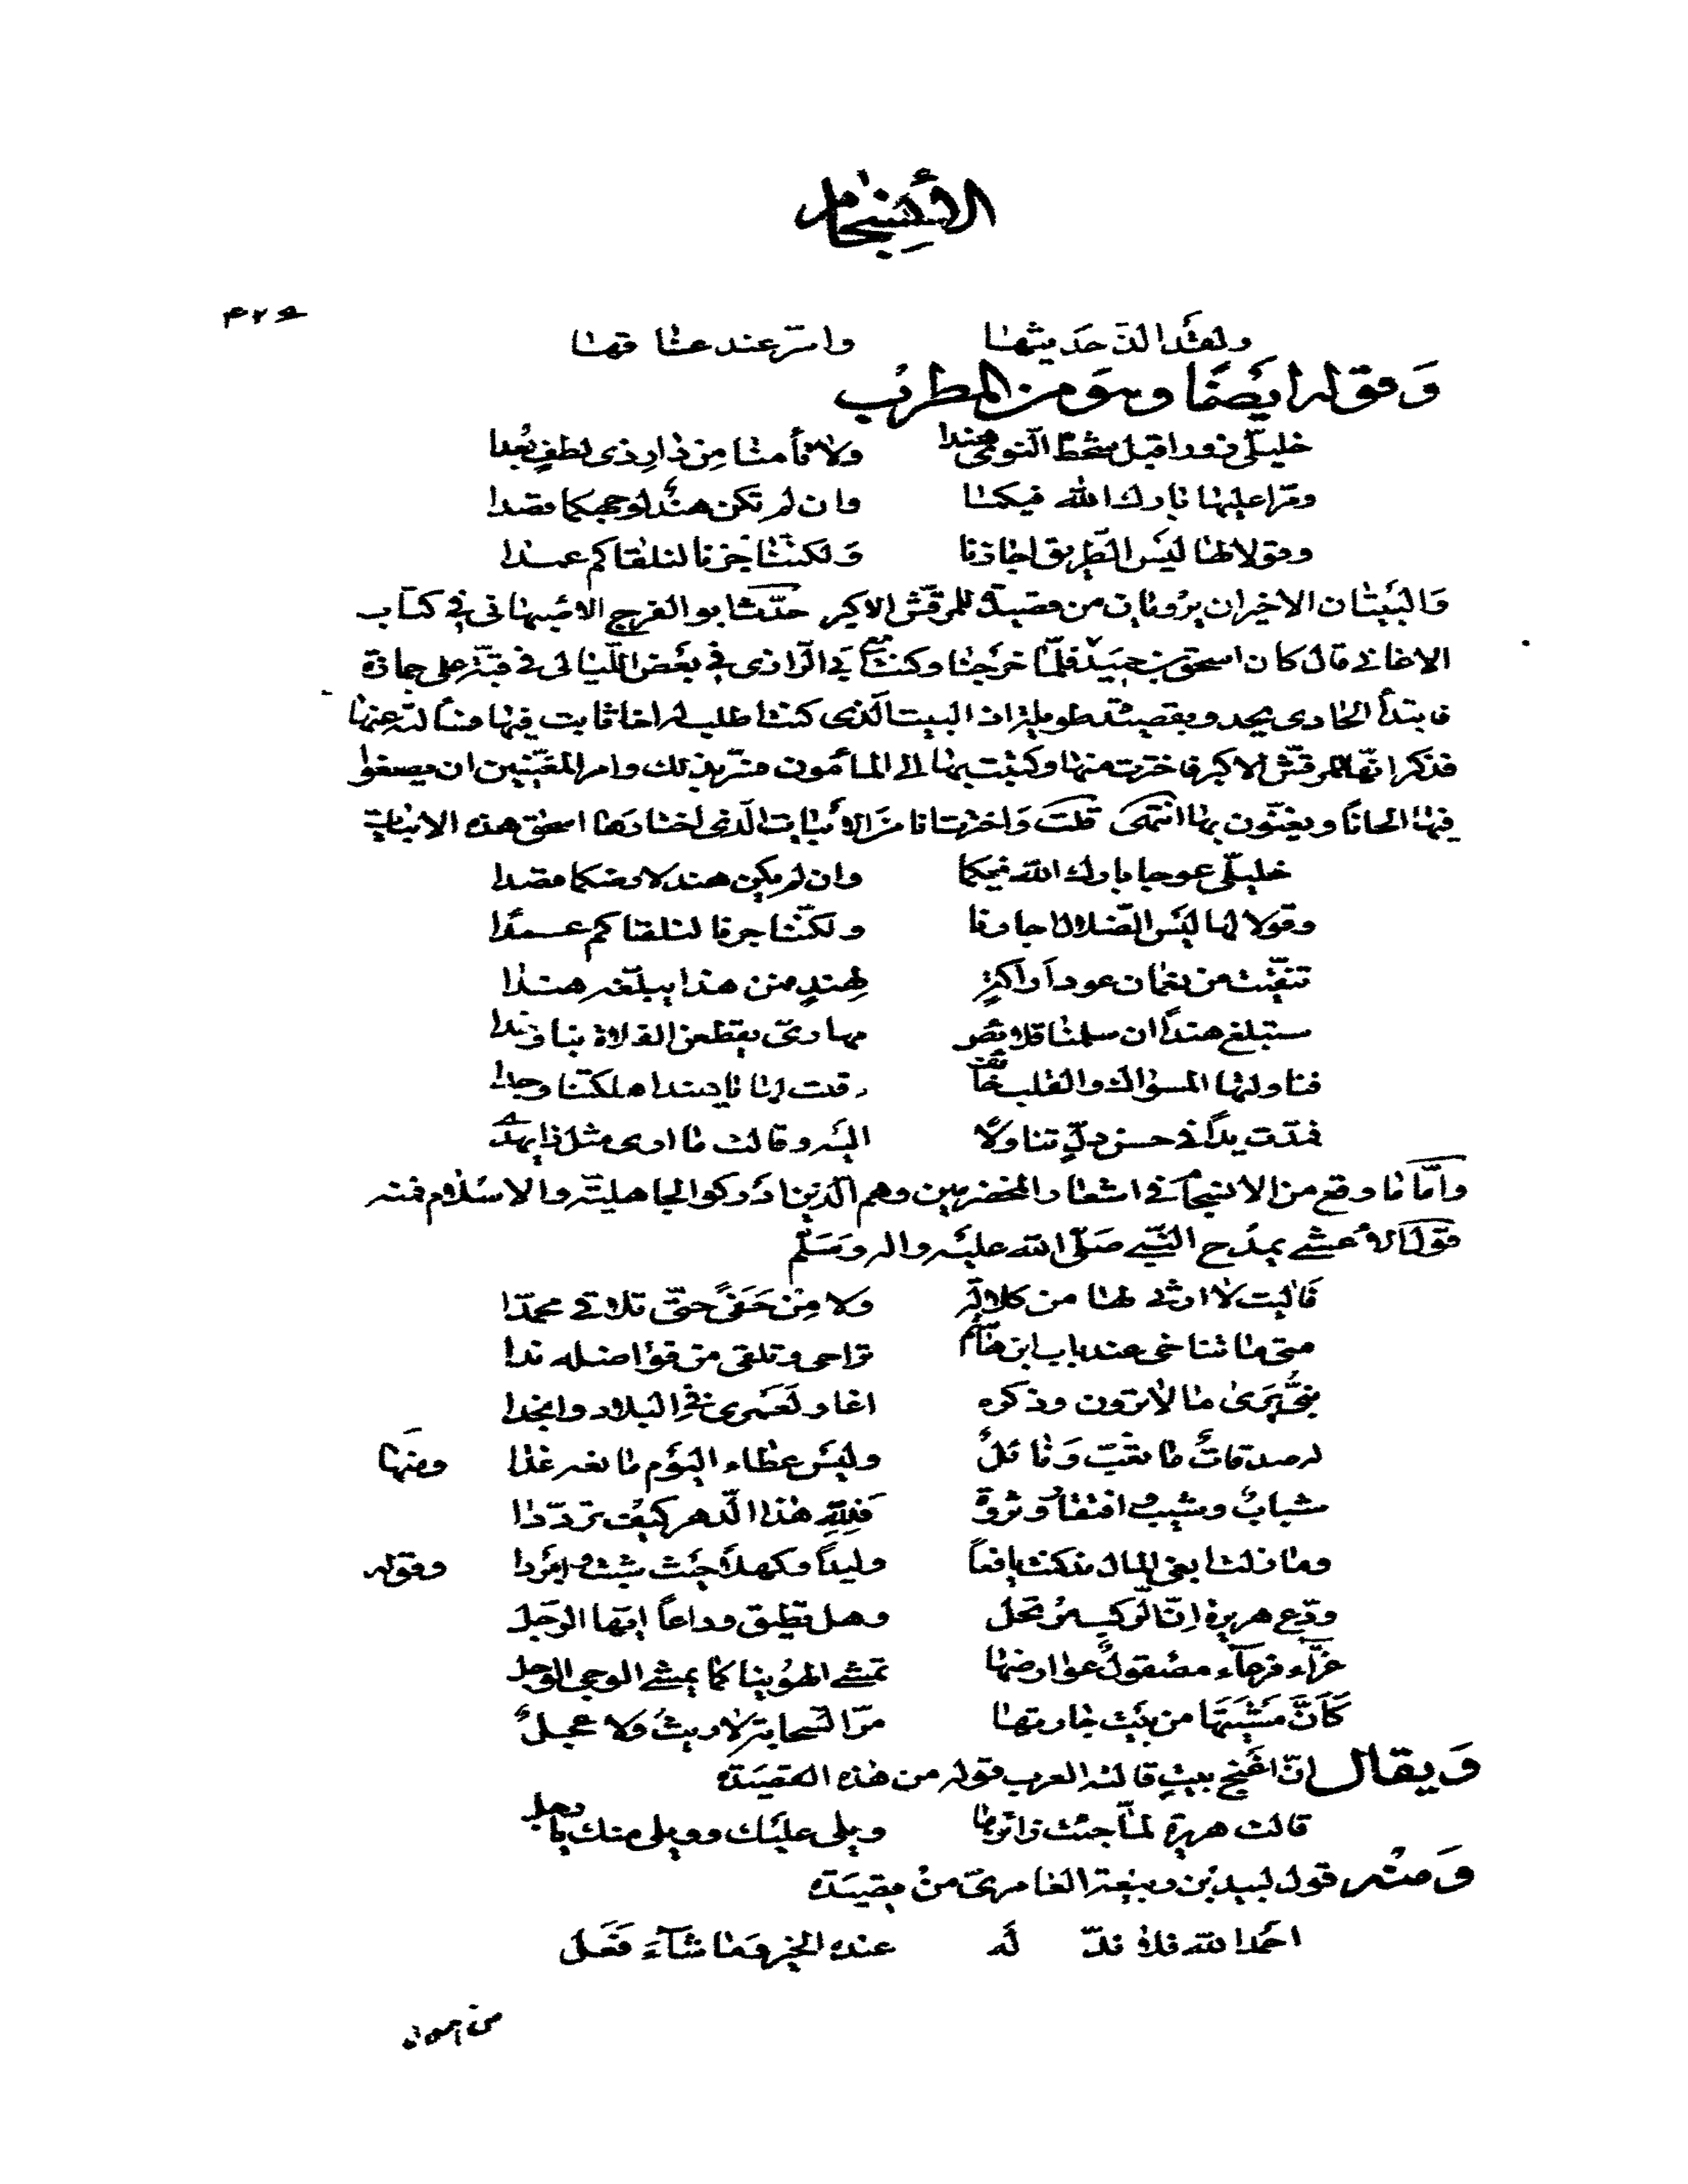 الأنسجام
ولقد الذ حديثها واسر عند عناقها
وقوله ايضا وهو من المطرب
خليلى زورا قبل شحط النوى هندا ولا تأمنا من دار ذى لطف بعدا
ومرا عليها بارك الله فيكما وان لم تكن هند لوجهكما قصدا
وقولا لها ليس الطريق اجازنا ولكننا جزنا لنلقاكم عمدا
والبيتان الاخيران يرويان من قصيدة للمرقش الاكبر حدث ابو الفرج الاصبهانى فى كتاب
الاغانى قال كان اسحق بن حميد فلما خرجنا وكنت فى الرازى فى بعض الليالى فى قبة على جمازة
فابتدأ الحادى يحدو بقصيدة طويلة اذا البيت الذى كنت اطلبه اخا ثابت فيها فسألته عنها
فذكر انها للمرقش الاكبر فاخترت منها وكتبت بها الى المأمون فسر بذلك وامر المغنين ان يصنعوا
فيها الحانا ويغنون بها انتهى قلت واخترت انا من الأبيات الذى اختارها اسحق هذه الابيات
خليلى عوجا بارك الله فيكما وان لم يكن هند لارضكما قصدا
وقولا لها ليس الضلال اجارنا ولكننا جرنا لنلقاكم عمدا
تنقيت من نعمان عود اراكة لهند فمن هذا يبلغه هندا
ستبلغ هندا ان سلمنا قلائص مهارى يقطعن الفلاة بنا
فناولتها المسواك والقلب خائف وقلت لها يا هند اهلكتنا وجدا
فمدت يدا فى حسن دل تناولا اليه وقالت ما ارى مثل ذا يهدى
واما ما وقع من الانسجام فى اشعار المخضرمين وهم الذين ادركوا الجاهلية والاسلام فمنه
قول الأعشى يمدح النبى صلى الله عليه واله وسلم
فاليت لا ارثى لها من كلالة ولا من حفى حتى تلاقى محمدا
متى ما تناخى عند باب ابن هاشم تراحى وتلقى من فواضله ندا
نبى يرى ما لا ترون وذكره اغار لعمرى فى البلاد وانجدا
له صدقات ما تغب ونائل وليس عطاء اليوم مانعه غدا ومنها
شباب وشيب وافتقار وثروة فلله هذا الدهر كيف ترددا
وما زلت ابغى المال مذ كنت يافعا وليدا وكهلا حيث شبت وامردا وقوله
ودع هريرة ان الركب مرتحل وهل تطيق وداعا ايها الرجل
غراء فرعاء مصقول عوارضها تمشى الهوينا كما يمشى الوجى الوحل
كأن مشيتها من بيت جارتها مر السحابة لا ريث ولا عجل
ويقال ان اغنج بيت قالته العرب قوله من هذه القصيدة
قالت هريرة لما جئت زائرها ويلى عليك وويلى منك يا رجل
ومنه قول لبيد بن ربيعة العامرى من قصيدة
احمد الله فلا ند له عنده الخير وما شاء فعل